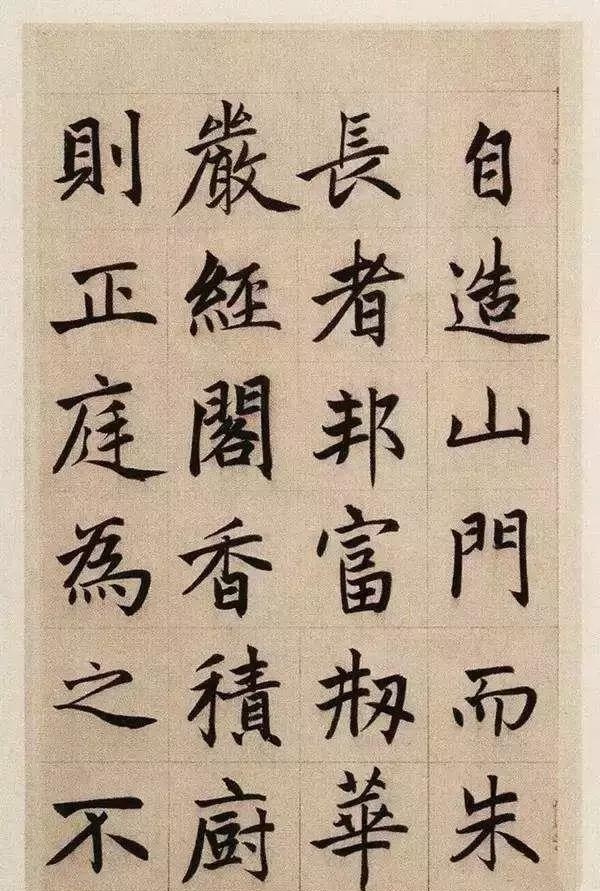 自造山門而朱
長者邦富剏華
嚴經閣香積廚
則正庭為之不